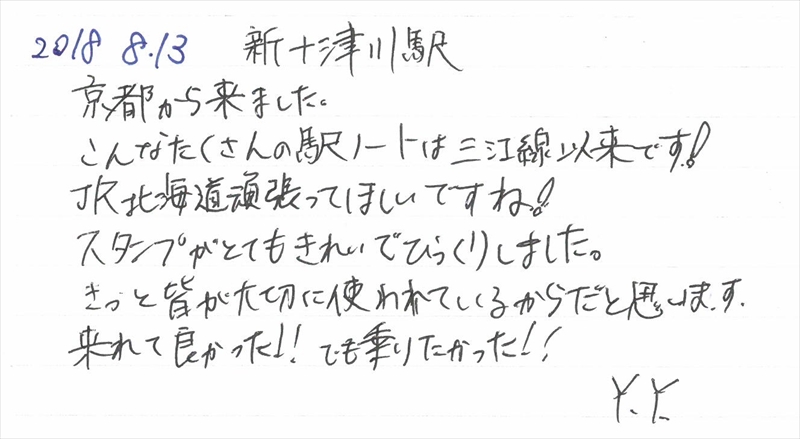 2018 8.13 新十津川駅
京都から来ました。
こんなたくさんの駅ノートは三江線以来です!
JR北海道頑張ってほしいですね!
スタンプがとてもきれいでびっくりしました。
きっと皆が大切に使われているからだと思います.
来れて良かった!! でも乗りたかった!!
Y.Y.